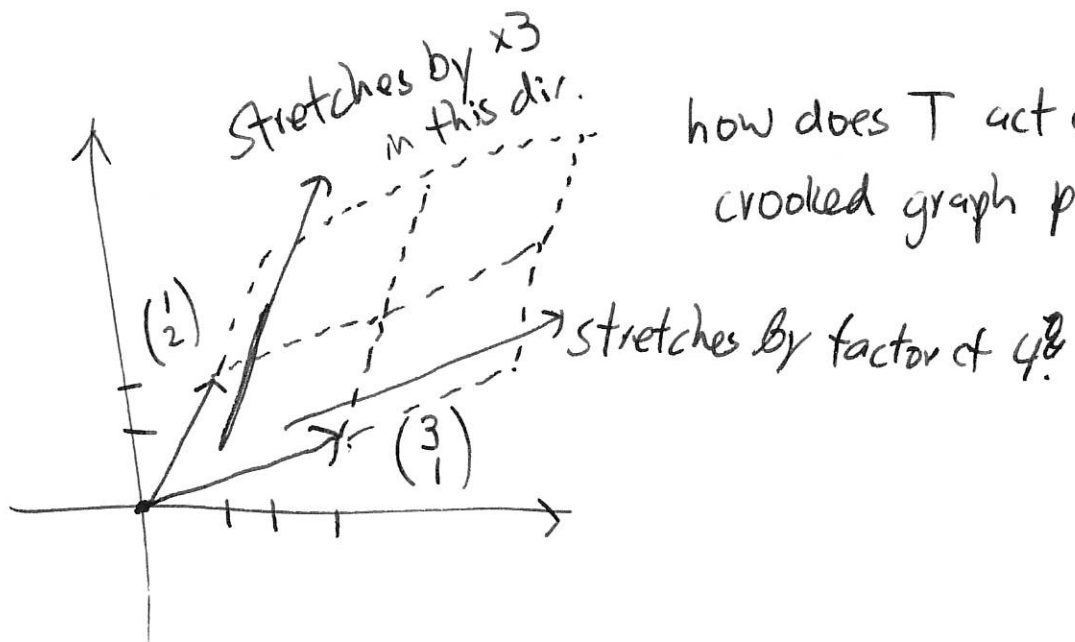 stretches by ×3
in this dir.
how does T act
crooked graph p
(1
2)
stretches by factor of 4?
(3
1)